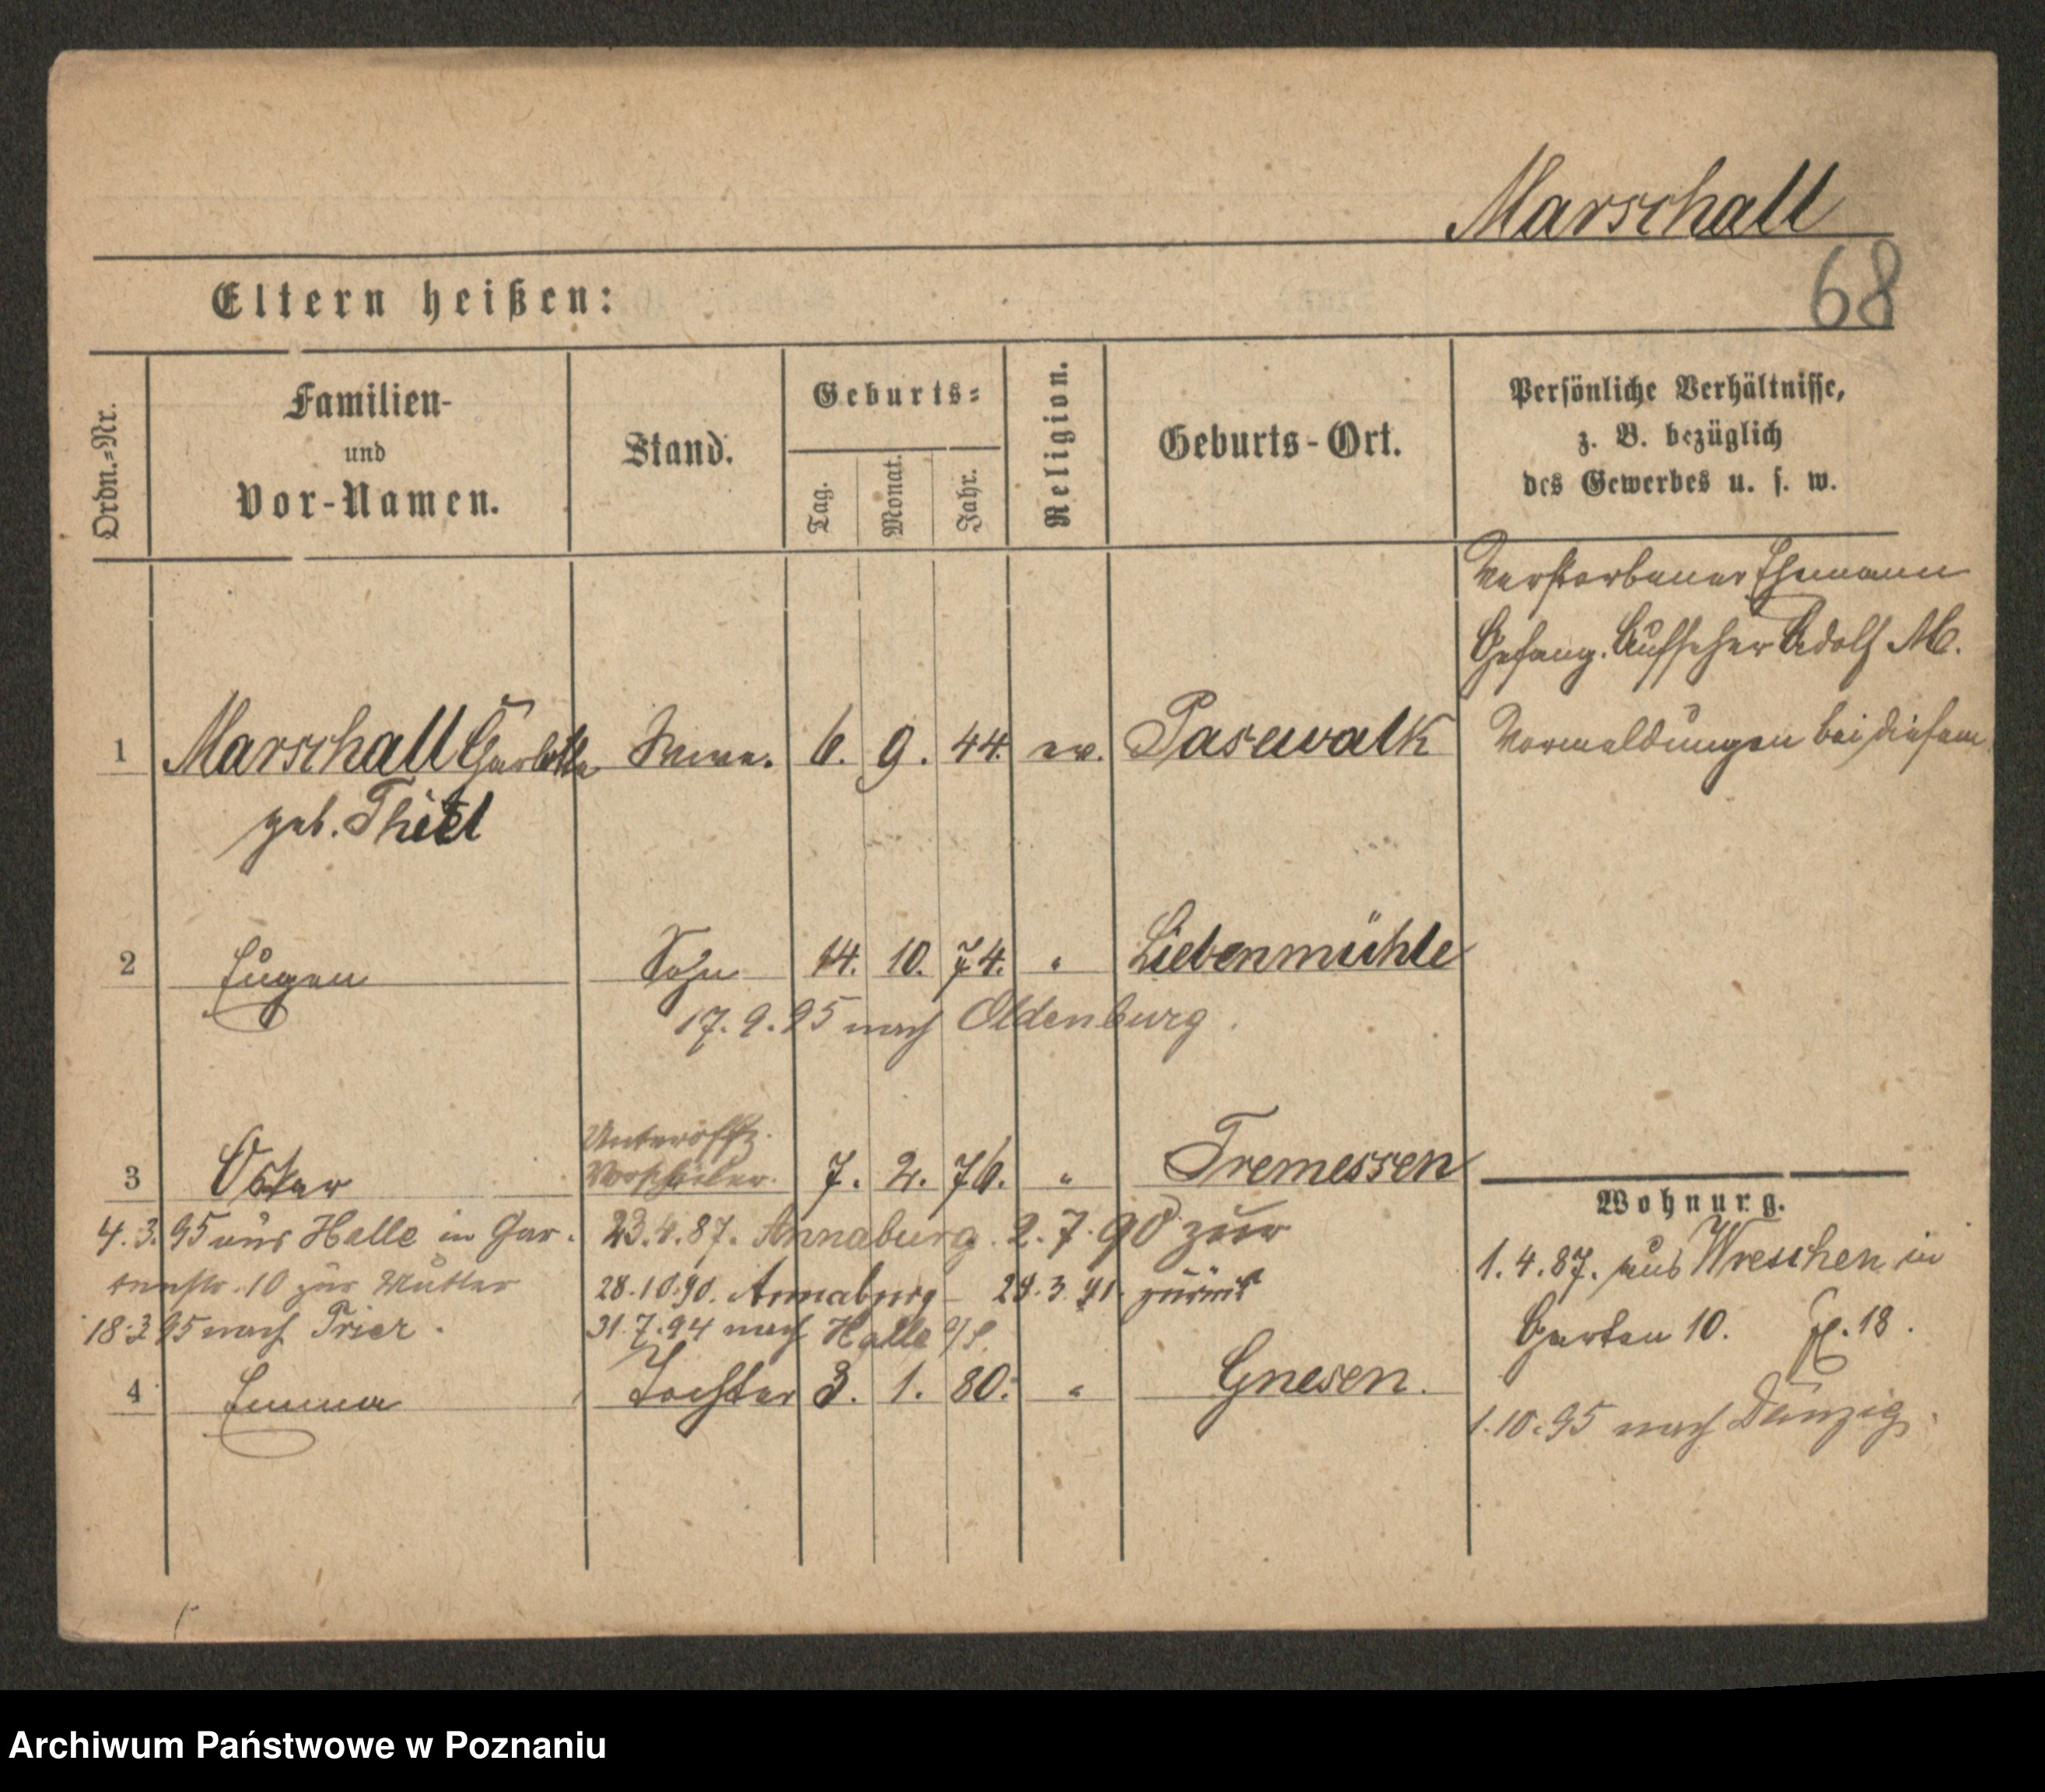 Marschall
68
Eltern heißen:
Ordn.=Nr.
Familien-
und
Vor-Namen.
Stand.
Geburts=
Tag.
Monat.
Jahr.
Religion.
Geburts-Ort.
Persönliche Verhältnisse,
z. B. bezüglich
des Gewerbes u. s. w.
Verstorbener Ehemann
Gefang. Aufseher Adolf M.
Vormeldungen bei diesem
1 Marschall Charlotte Wwe. 6. 9. 44. ev. Pasewalk
geb. Thiel
2 Eugen Sohn 14. 10. 74. " Liebenmühle
17.9.95 nach Oldenburg.
Unteroffz.
3 Oskar Vorschüler. 7. 2. 76. " Tremessen
4.3.95 aus Halle in Gar- 23.4.87. Annaburg. 2.7.90 zur
tenstr. 10 zur Mutter 28.10.90. Annaburg - 24.3.91. zurück
18.3.95 nach Trier. 31.7.94 nach Halle a/S.
4 Emma Tochter 3. 1. 80. " Gnesen.
Wohnung.
1.4.87. aus Wreschen in
Garten 10. 18.
1.10.95 nach Danzig.
Archiwum Państwowe w Poznaniu